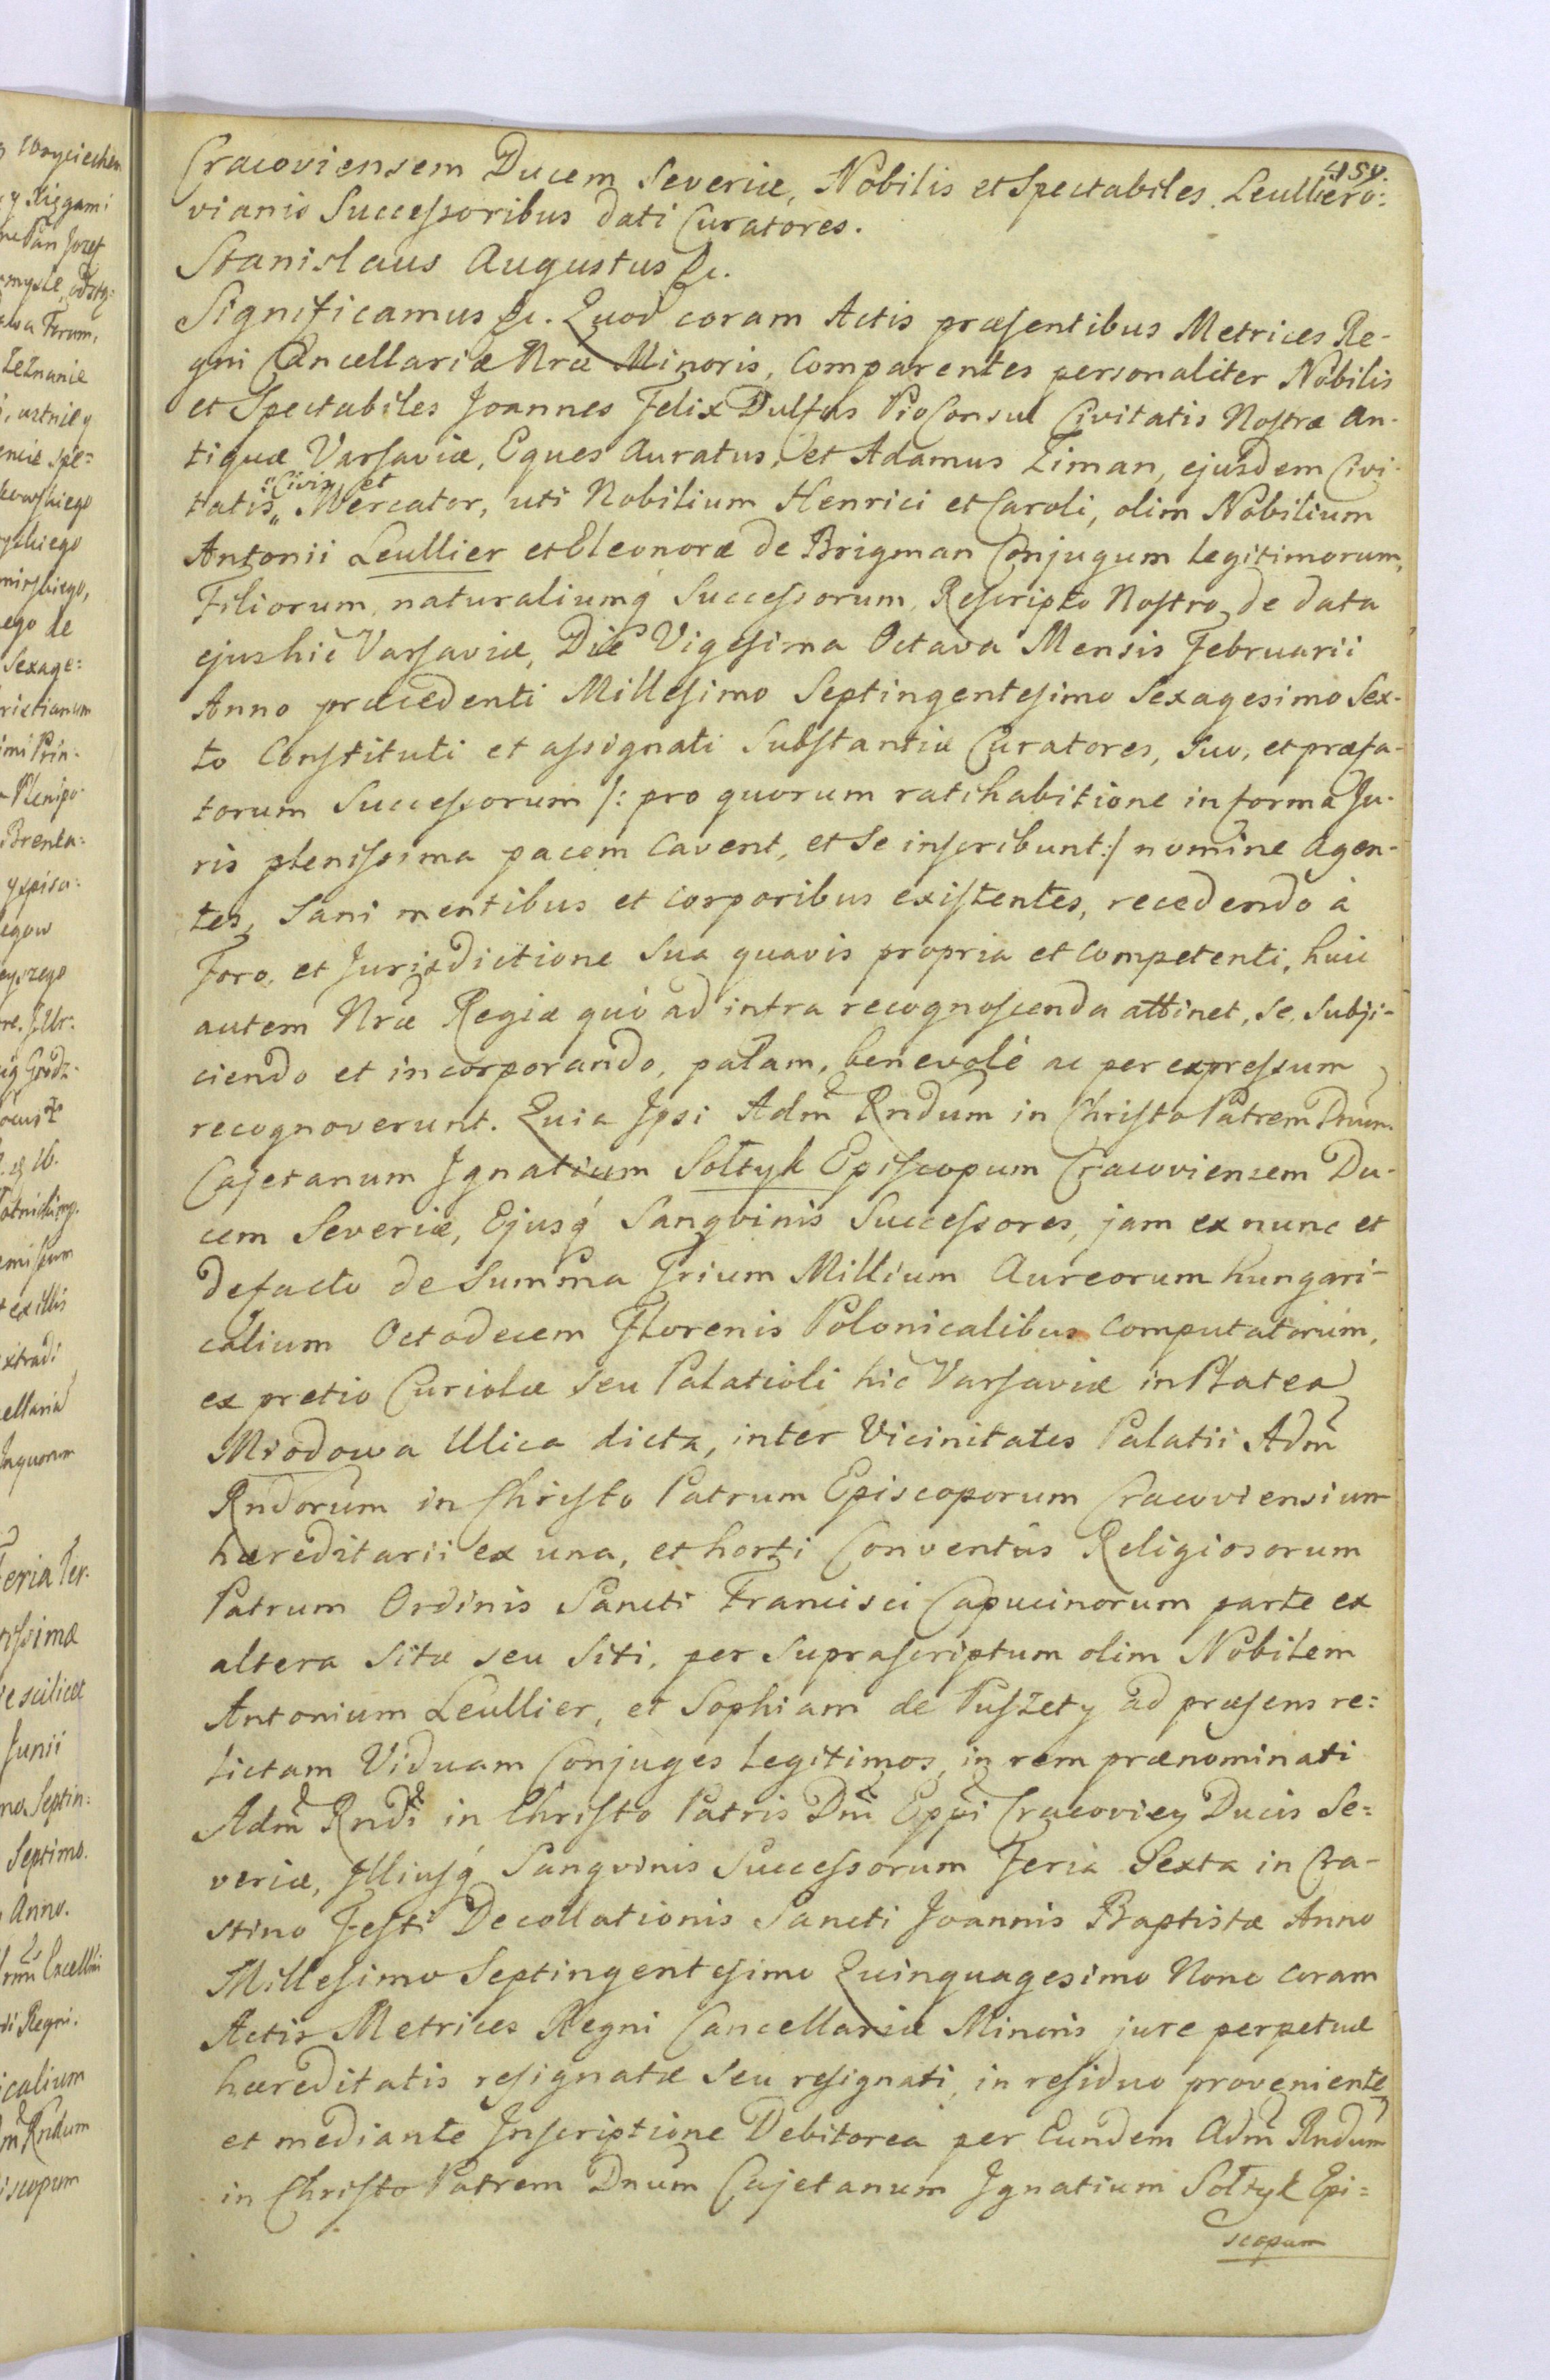 454.
Cracoviensem Ducem Severiæ, Nobilis et Spectabiles Leulliero:
vianis Successoribus dati Curatores.
Stanislaus Augustus &c.
Significamus &c. Quod coram Actis præsentibus Metrices Re-
gni Cancellariæ Nræ Minoris, Comparentes personaliter Nobilis
et Spectabiles Joannes Felix Dulfus ProConsul Civitatis Nostræ An-
tiquæ Varsaviæ, Eques Auratus, et Adamus Ziman, ejusdem Civi-
tatis "Civis et" Mercator, uti Nobilium Henrici et Caroli, olim Nobilium
Antonii Leullier et Eleonoræ de Brigman Conjugum legitimorum,
Filiorum, naturaliumq́ Successorum, Rescripto Nostro de data
ejus hic Varsaviæ, Die Vigesima Octava Mensis Februarii
Anno præcedenti Millesimo Septingentesimo Sexagesimo Sex-
to Constituti et assignati Substantiæ Curatores, suo, et præfa-
torum Successorum /: pro quorum ratihabitione in forma Ju-
ris plenissima pacem Cavent, et Se inscribunt :/ nomine Agen-
tes, Sani mentibus et corporibus existentes, recedendo à
Foro, et Jurisdictione Sua quavis propria et Competenti, huic
autem Nræ Regiæ quò ad intra recognoscenda attinet, se, subji-
ciendo et incorporando, palam, benevolè ac per expressum
recognoverunt. Quia Ipsi Adm̃ Rndum in Christo Patrem Dnum
Cajetanum Ignatium Sołtyk Episcopum Cracoviensem Du-
cem Severiæ, Ejusq́ Sangvinis Successores, jam ex nunc et
de facto de Summa Trium Millium Aureorum hungari-
calium Octodecem Florenis Polonicalibus Computatorum,
ex pretio Curiolæ seu Palatioli hic Varsaviæ in Platea
Miodowa Ulica dicta, inter Vicinitates Palatii Adm̃
Rndorum in Christo Patrum Episcoporum Cracoviensium
hæreditarii ex una, et horti Conventûs Religiosorum
Patrum Ordinis Sancti Francisci Capucinorum parte ex
altera sitæ seu siti, per Suprascriptum olim Nobilem
Antonium Leullier, et Sophiam de Puszety ad præsens re:
lictam Viduam Conjuges legitimos, in rem prænominati
Adm̃ Rndi in Christo Patris Dni Eppi Cracovien Ducis Se:
veriæ, Illiusq́ Sangvinis Successorum Feria Sexta in Cra-
stino Festi Decollationis Sancti Joannis Baptistæ Anno
Millesimo Septingentesimo Quinquagesimo Nono coram
Actis Metrices Regni Cancellariæ Minoris jure perpetuæ
hæreditatis resignatæ seu resignati, in residuo proveniente
et mediante Inscriptione Debitorea per Eundem Adm̃ Rndum
in Christo Patrem Dnum Cajetanum Ignatium Sołtyk Epi:
scopum